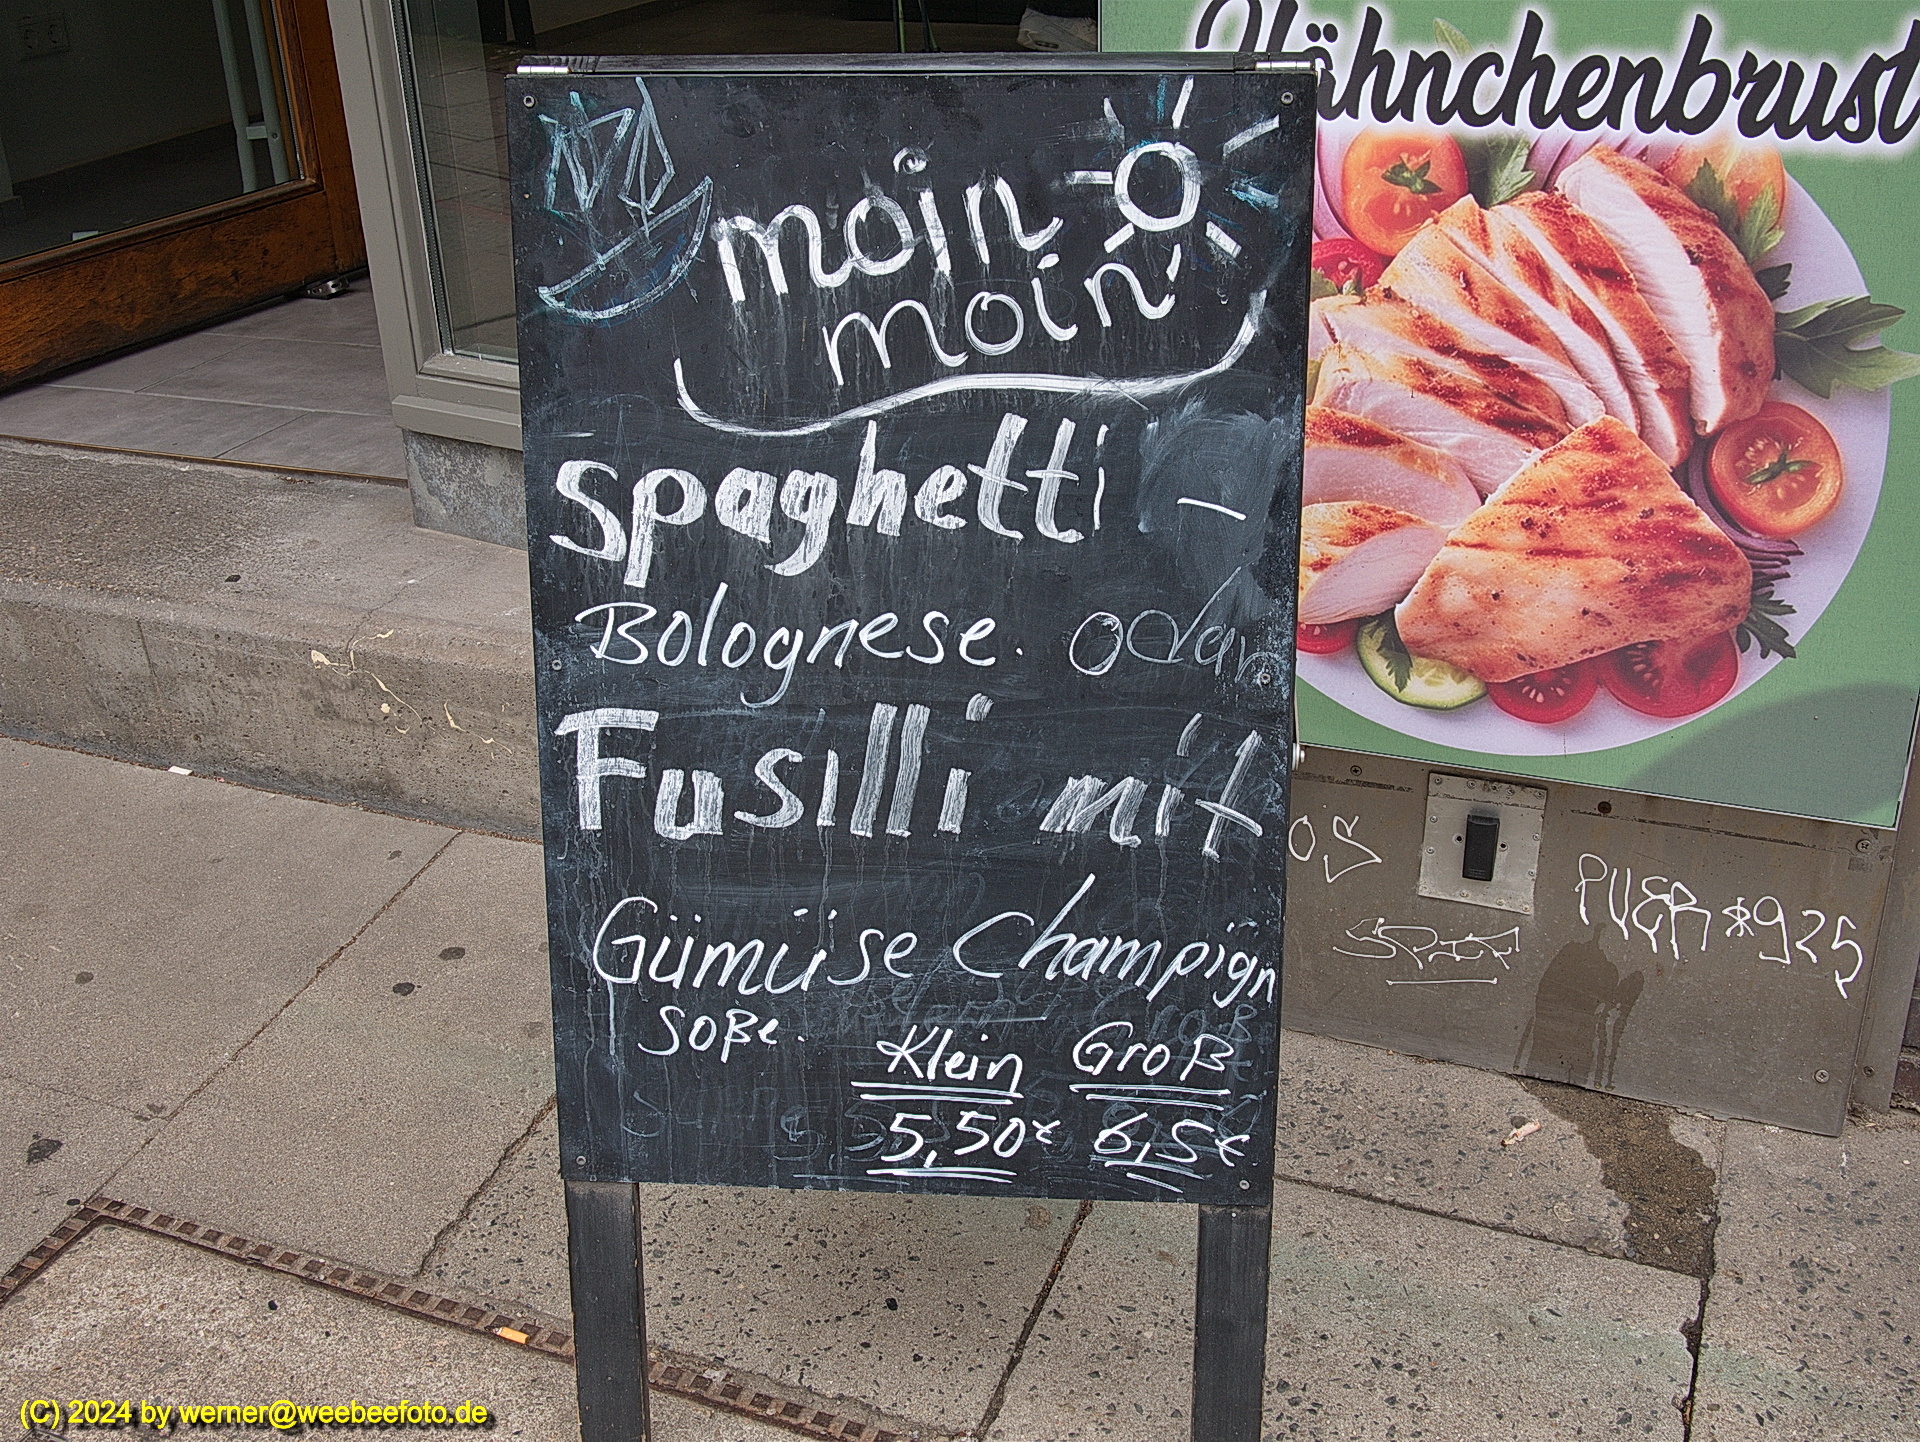 moin
moin
Spaghetti -
Bolognese. odar
Fusilli mit
Gümüse Champign
Soße.
Klein Groß
5,50€ 6,5€
Hähnchenbrust
OS
PUER*925
(C) 2024 by werner@weebeefoto.de